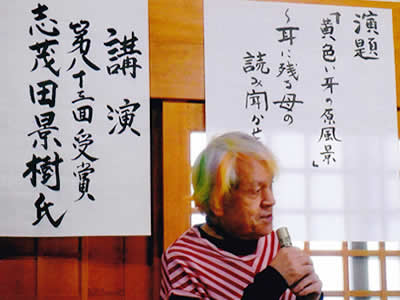 演題
『黄色い耳の原風景』
～耳に残る母の
読み聞かせ
講演
第八十三回受賞
志茂田景樹氏